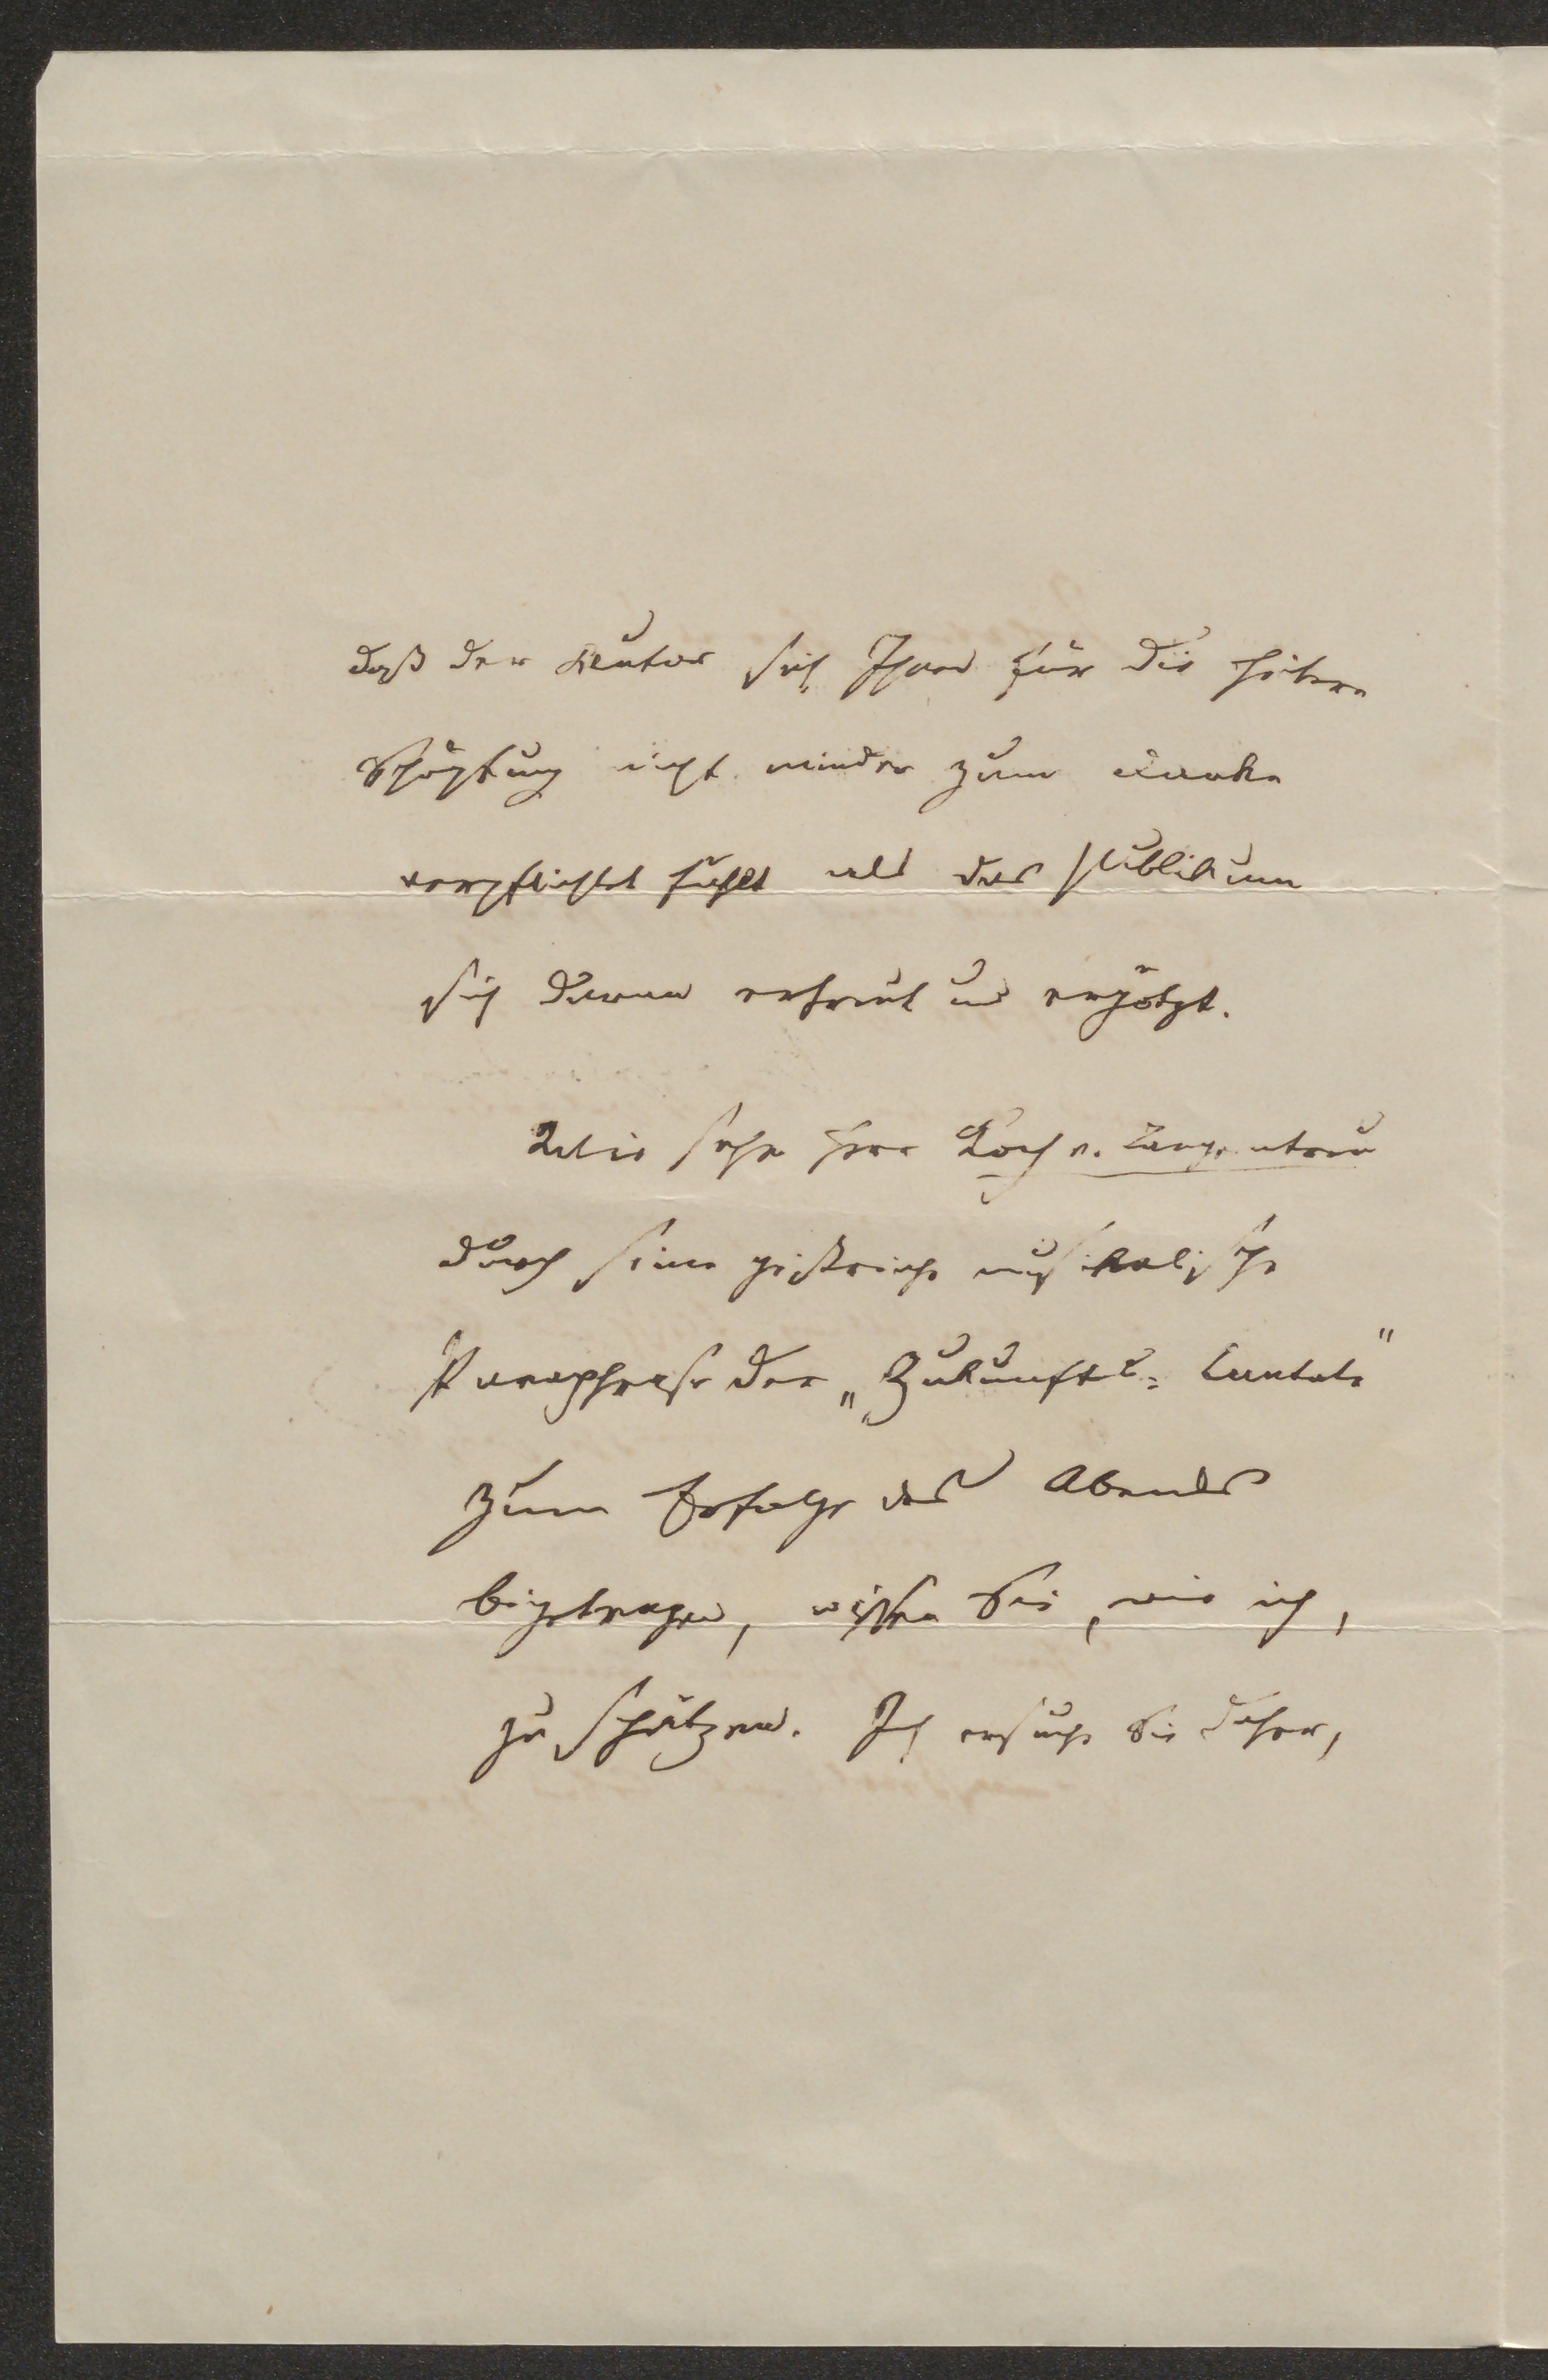 daß der Autor sich Ihnen für die heitere
Schöpfung nicht minder zum Danke
verpflichtet fühlt als das Publikum
sich daran erfreut und ergötzt.
Wie sehr Herr Koch v. Langentreu
durch seine geistreiche musikalische
Paraphrase der „Zukunfts-Cantate"
zum Erfolge des Abends
beigetragen, wissen Sie, wie ich,
zu schätzen. Ich ersuche Sie daher,